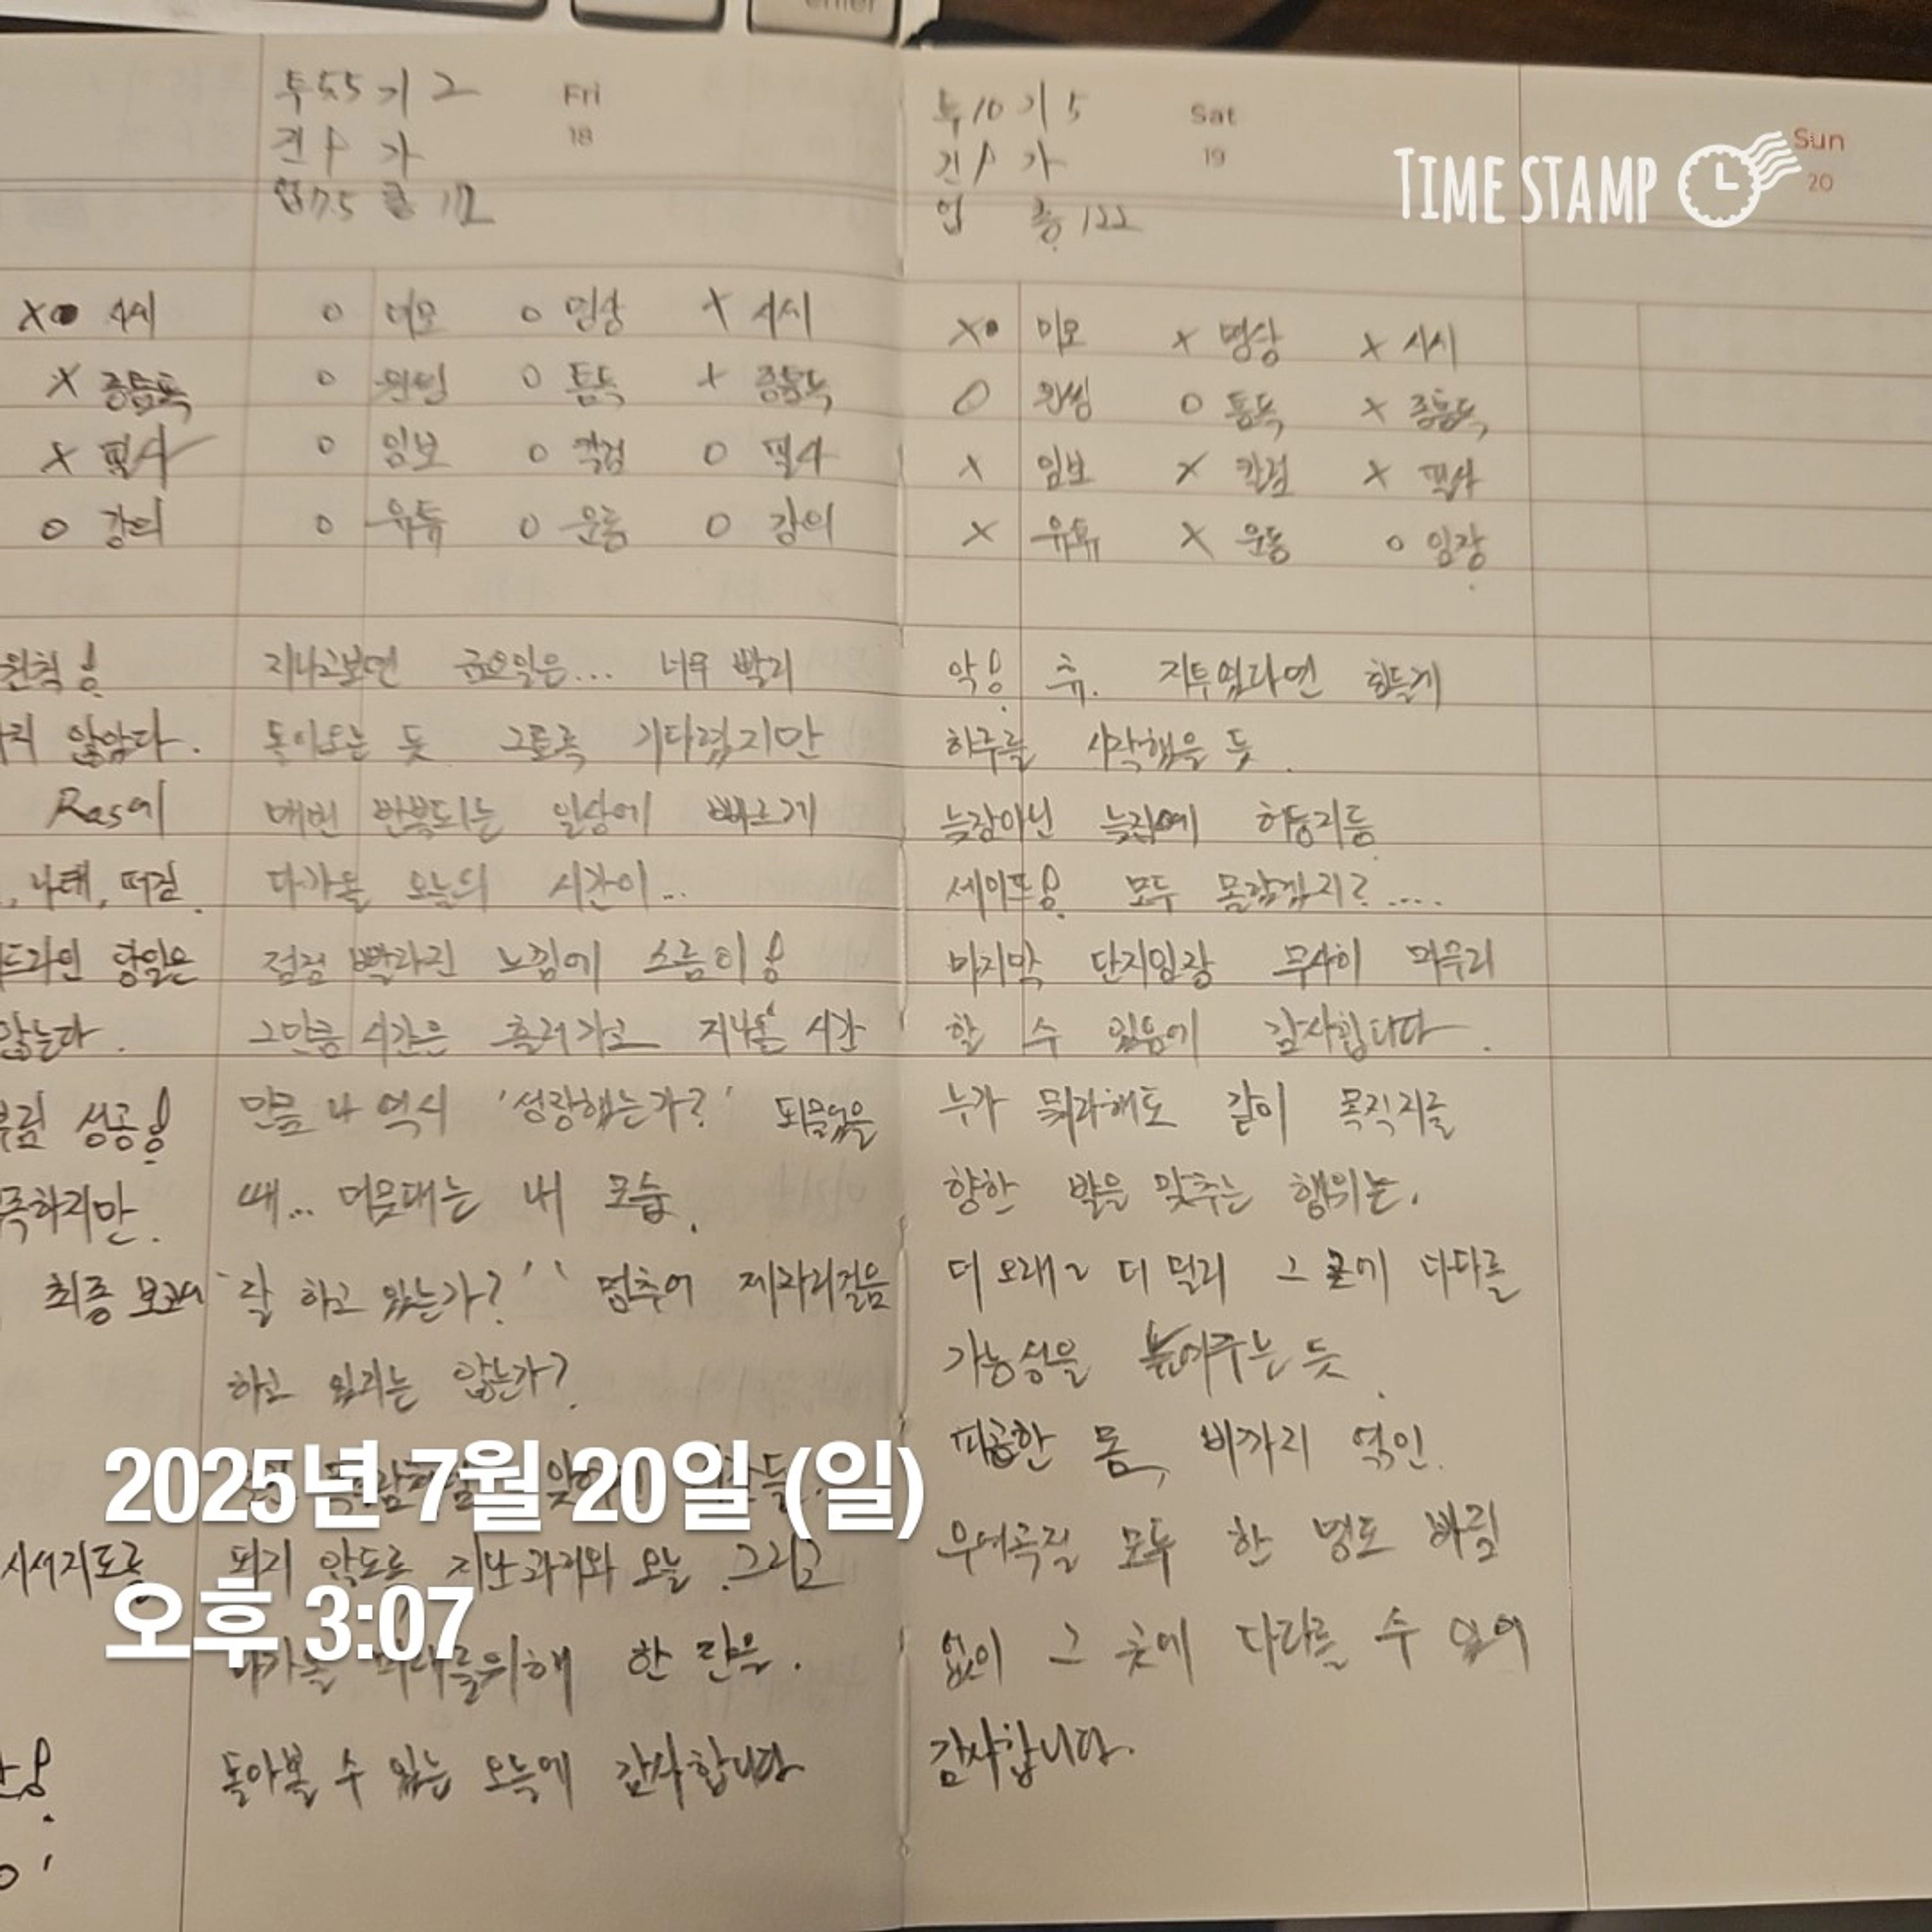 enter
투5.5 기 2
Fri
18
건 1 가
업7.5 총 112
투10 기 5
Sat
19
건 1 가
업 총 122
TIME STAMP
Sun
20
X 시세
X 종통독
X 필사
O 강의
O 미모 O 명상 X 시세
O 원씽 O 통독 X 종통독
O 임보 O 칼럼 O 필사
O 유튜 O 운동 O 강의
X 미모 X 명상 X 시세
O 원씽 O 통독 X 종통독
X 임보 X 칼럼 X 필사
X 유튜 X 운동 O 임장
원칙!
않았다.
Ras에
나태,
당일은
않는다.
성공!
족하지만.
최종
시세지도를
지나고보면 금요일은... 너무 빨리
돌아오는 듯 그토록 기다렸지만
매번 반복되는 일상에 빠르게
다가올 오늘의 시간이...
점점 빨라진 느낌에 소름이!
그만큼 시간은 흘러가고 지나온 시간
만큼 나 역시 '성장했는가?' 되물었을
때... 머뭇대는 내 모습.
잘 하고 있는가?'' 멈추어 제자리걸음
하고 있지는 않는가?
되지 않도록 지난 과거와 오늘. 그리고
다가올 미래를위해 한 걸음.
돌아볼 수 있는 오늘에 감사합니다
악! 휴. 지투였다면 힘들게
하루를 시작했을 듯.
늦잠아닌 늦잠에 허둥지둥
세이프! 모두 몰랐겠지?.....
마지막 단지임장 무사히 마무리
할 수 있음에 감사합니다.
누가 뭐라해도 같이 목적지를
향한 발을 맞추는 행위는.
더 오래~ 더 멀리 그 곳에 다다를
가능성을 높여주는 듯.
피곤한 몸, 비까지 엮인.
우여곡절 모두 한 명도 빠짐
없이 그 곳에 다다를 수 있어
감사합니다.
2025년 7월 20일 (일)
오후 3:07